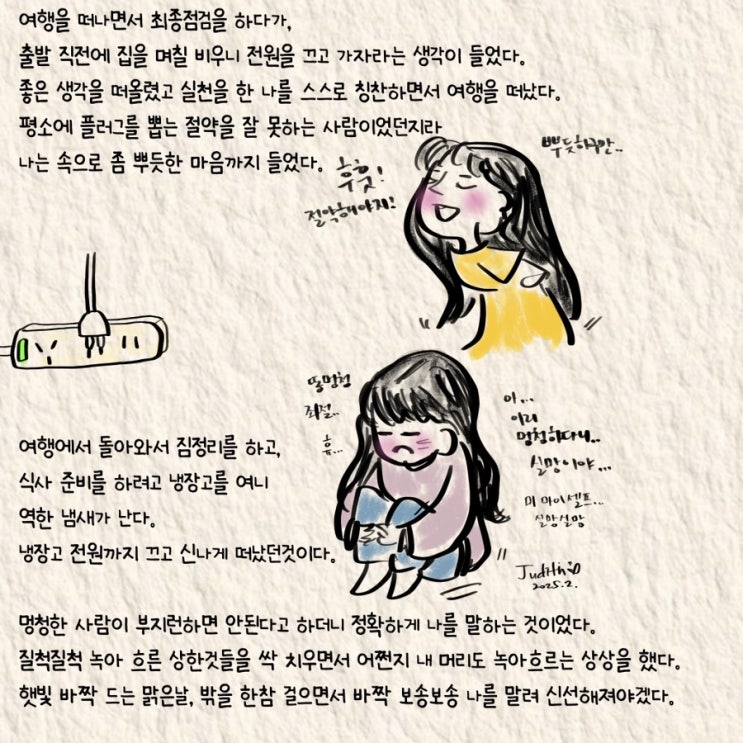 여행을 떠나면서 최종점검을 하다가,
출발 직전에 집을 며칠 비우니 전원을 끄고 가자라는 생각이 들었다.
좋은 생각을 떠올렸고 실천을 한 나를 스스로 칭찬하면서 여행을 떠났다.
평소에 플러그를 뽑는 절약을 잘 못하는 사람이었던지라
나는 속으로 좀 뿌듯한 마음까지 들었다.
뿌듯하구만..
후훗!
절약해야지!
똥멍청
좌절..
흐...
아...
이리
멍청하다니..
실망이야...
미 마이셀프...
실망실망
여행에서 돌아와서 짐정리를 하고,
식사 준비를 하려고 냉장고를 여니
역한 냄새가 난다.
냉장고 전원까지 끄고 신나게 떠났던것이다.
Judith
2025.2.
멍청한 사람이 부지런하면 안된다고 하더니 정확하게 나를 말하는 것이었다.
질척질척 녹아 흐른 상한것들을 싹 치우면서 어쩐지 내 머리도 녹아흐르는 상상을 했다.
햇빛 바짝 드는 맑은날, 밖을 한참 걸으면서 바짝 보송보송 나를 말려 신선해져야겠다.